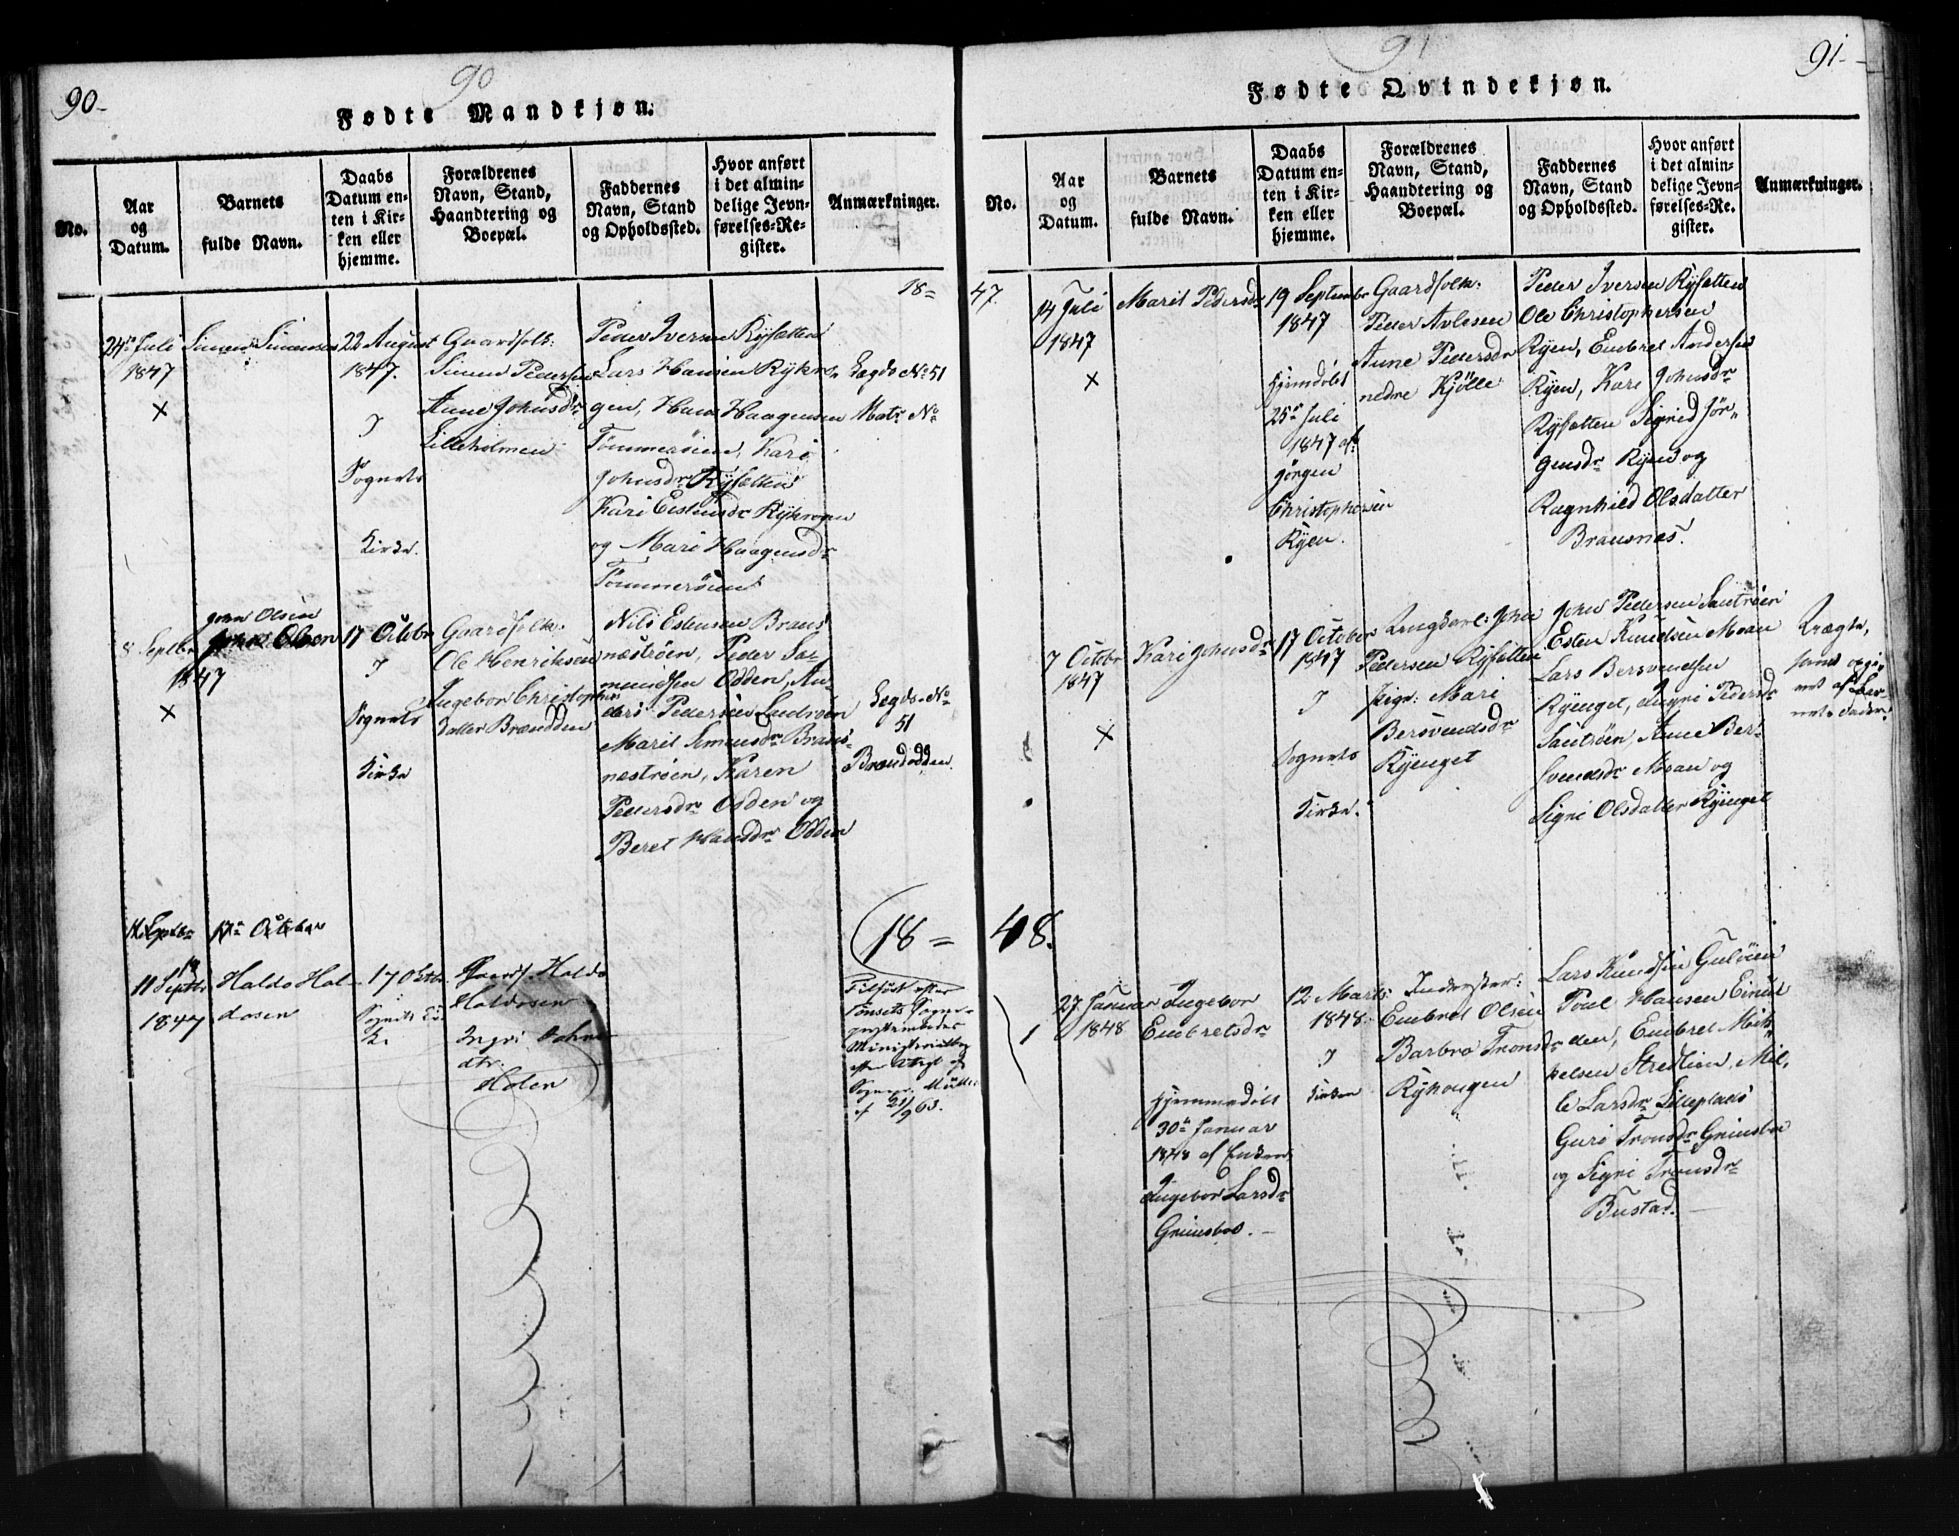 90-
90
Fødte Mandkjøn.
No.
Aar
og
Datum.
Barnets
fulde Navn.
Daabs
Datum en-
ten i Kir-
ken eller
hjemme.
Forældrenes
Navn, Stand,
Haandtering og
Boepæl.
Faddernes
Navn, Stand
og Opholdssted.
Hvor anført
i det almin-
delige Jevn-
førelses-Re-
gister.
Anmærkninger.
18=
24de Juli
1847
×
Simen Simensen
22 August
1847.
I
Sognets
Kirke.
Gaardfolk:
Simen Pedersen
Anne Johnsdr
Lilleholmen
Peder Iversen Rÿsætten
Lars Hansen Rÿhro-
gen, Hans Haagensen
Tömmeröien, Kari
Johnsdr Rÿsætten
Kari Estensdr Rÿhrogen
og Mari Haagensdr
Tömmeröien
Lægds No 51
Matr No
8 Septbr
1847
×
John Olsen
17 Octobr
I
Sognets
Kirke
Gaardfolk:
Ole Henriksen
Ingebor Christophers
datter Brændden
Nils Estensen Brans
næströen, Peder Sa-
muelsen Odden, An-
ders Pedersen Sandröen
Marit Simensdr Brans-
næströen, Karen
Pedersdr Odden og
Beret Hansdr Odden
Lægds No
51
Brændodden.
17de October
(18=
11 Septbr
1847
Haldo Hal-
dosen
17 Octbr.
Sognets
K.
Gaardf. Haldo
Haldosen
Ingri
dtr.
Holen
Tilföiet efter
Tönsets Sogne-
præstembedes
Ministerialbog
efter
Sogne
21/9 63.
91
91-
Fødte Qvindekjøn.
No.
Aar
og
Datum.
Barnets
fulde Navn.
Daabs
Datum en-
ten i Kir-
ken eller
hjemme.
Forældrenes
Navn, Stand,
Haandtering og
Boepæl.
Faddernes
Navn, Stand
og Opholdssted.
Hvor anført
i det almin-
delige Jevn-
førelses-Re-
gister.
Anmærkninger.
47.
14 Juli
1847
×
Marit Pedersdr
19 Septembr
1847
Hjemdöbt
25de Juli
1847 af
Jörgen
Christophersen
Rÿen.
Gaardfolk:
Peder Avlesen
Anne Pedersdr
nedre Kjölle
Peder Iversen Rÿsætten
Ole Christophersen
Rÿen, Embret Andersen
Rÿen, Kari Johnsdr
Rÿsætten Sigrid Jör-
gensdr Rÿen og
Ragnhild Olsdatter
Bransnæs.
7 Octobr
1847
×
Kari Johnsdr
17 October
1847
I
Sognets
Kirke.
Ungkarl: John
Pedersen Rÿsætten
Pige: Mari
Bersvendsdr
Rÿenget
John Pedersen Santröen
Esten Knudsen Moan
Lars Bersvendsen
Rÿenget, Ingri Pedersdr
Santröen, Anne Ber-
svendsdr Moan og
Sigri Olsdatter Rÿenget
Uægte,
som opgiv
net af Bar
nets Fader.
48.
1
27 Januar
1848
Ingebor
Embretsdr
Hjemmedöbt
30te Januar
1848 af Enken
Ingebor Larsdr
Grimsboe.
12 Marts
1848.
I
Kirken
Inderster:
Embret Olsen
Barbro Tronsdr
Rÿhaugen
Lars Knudsen Gulöien
Poul Hansen Einut-
den, Embret Mik-
kelsen Strædlien, Mil-
le Larsdr Lilleplads
Guri Tronsdr Grimsboe
og Sigri Tronsdr
Bustad.